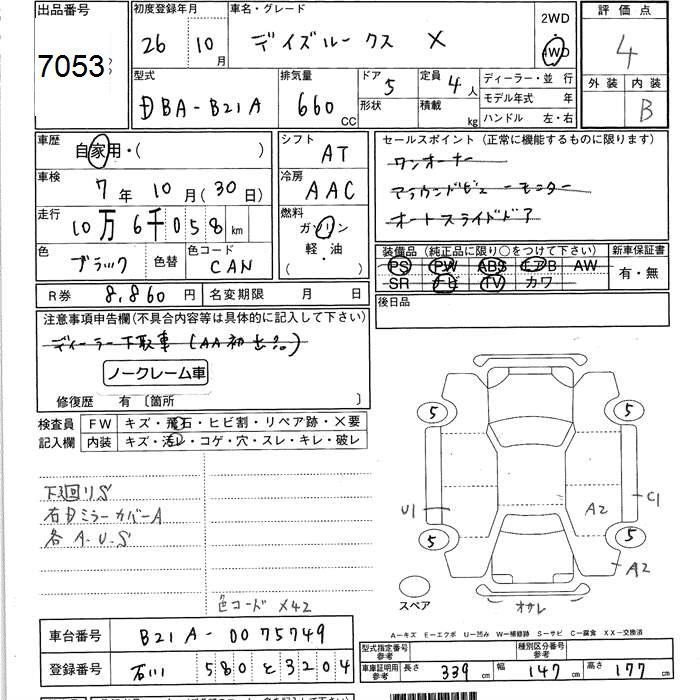 出品番号 初度登録年月 車名・グレード 2WD 評価点
7053 26 10月 デイズルークス X 4WD 4
外装 内装
型式 排気量 ドア 定員 ディーラー・並行 B
DBA-B21A 660 CC 5 4人 モデル年式 年
形状 積載 kg ハンドル 左・右
車歴 自家用・( ) シフト AT セールスポイント (正常に機能するものに限ります)
ワンオーナー
車検 7年 10月 (30日) 冷房 AAC アラウンドビューモニター
走行 10万 6千 058 km 燃料 ガソリン 軽・油 ( ・ ) オートスライドドア
色 ブラック 色替 色コード CAN 装備品 (純正品に限り○をつけて下さい) 新車保証書
PS PW ABS エアB AW 有・無
R券 8,860円 名変期限 月 日 SR ナビ TV カワ
後日品
注意事項申告欄(不具合内容等は具体的に記入して下さい)
ディーラー下取車 (AA初出品)
ノークレーム車
修復歴 有 〔箇所 〕
検査員 FW キズ・飛石・ヒビ割・リペア跡・X要
記入欄 内装 キズ・汚レ・コゲ・穴・スレ・キレ・破レ
5 5
下廻りS
右Dミラーカバー A
各A.U.S
U1 A2 C1
5 5
A2
色コード X42
スペア オサレ
A-キズ E-エクボ U-凹み W-補修跡 S-サビ C-腐食 XX-交換済
車台番号 B21A-0075749
型式指定番号 参考 種別区分番号 参考
登録番号 石川 580 と 3204
車庫証明用 参考 長さ 339 cm 幅 147 cm 高さ 177 cm